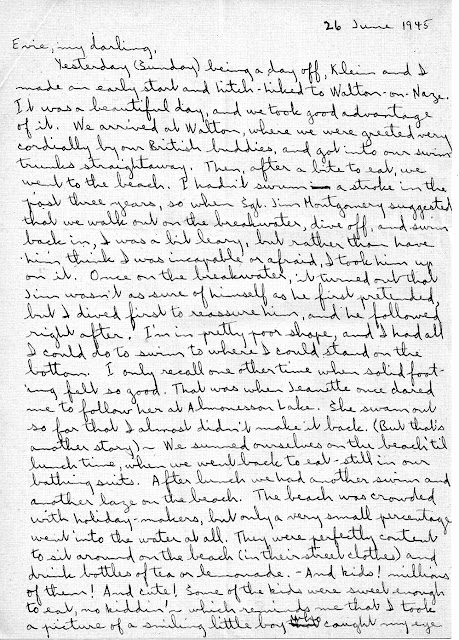 26 June 1945
Evie, my darling,
Yesterday (Sunday) being a day off, Klein and I
made an early start and hitch-hiked to Walton-on-Naze.
It was a beautiful day, and we took good advantage
of it. We arrived at Walton, where we were greeted very
cordially by our British buddies, and got into our swim
trunks straightaway. Then, after a bite to eat, we
went to the beach. I hadn't swum a stroke in the
past three years, so when Sgt. Jim Montgomery suggested
that we walk out on the breakwater, dive off, and swim
back in, I was a bit leary, but rather than have
him think I was incapable or afraid, I took him up
on it. Once on the breakwater, it turned out that
Jim wasn't as sure of himself as he first pretended,
but I dived first to reassure him, and he followed
right after. I'm in pretty poor shape, and I had all
I could do to swim to where I could stand on the
bottom. I only recall one other time when solid foot-
ing felt so good. That was when Jeanette once dared
me to follow her at Almonesson Lake. She swam out
so far that I almost didn't make it back. (But that's
another story) ~ We sunned ourselves on the beach 'til
lunch time, when we went back to eat - still in our
bathing suits. After lunch we had another swim and
another laze on the beach. The beach was crowded
with holiday-makers, but only a very small percentage
went into the water at all. They were perfectly content
to sit around on the beach (in their street clothes) and
drink bottles of tea or lemonade. - And kids! millions
of them! And cute! Some of the kids were sweet enough
to eat, no kiddin' ~ which reminds me that I took
a picture of a smiling little boy who caught my eye